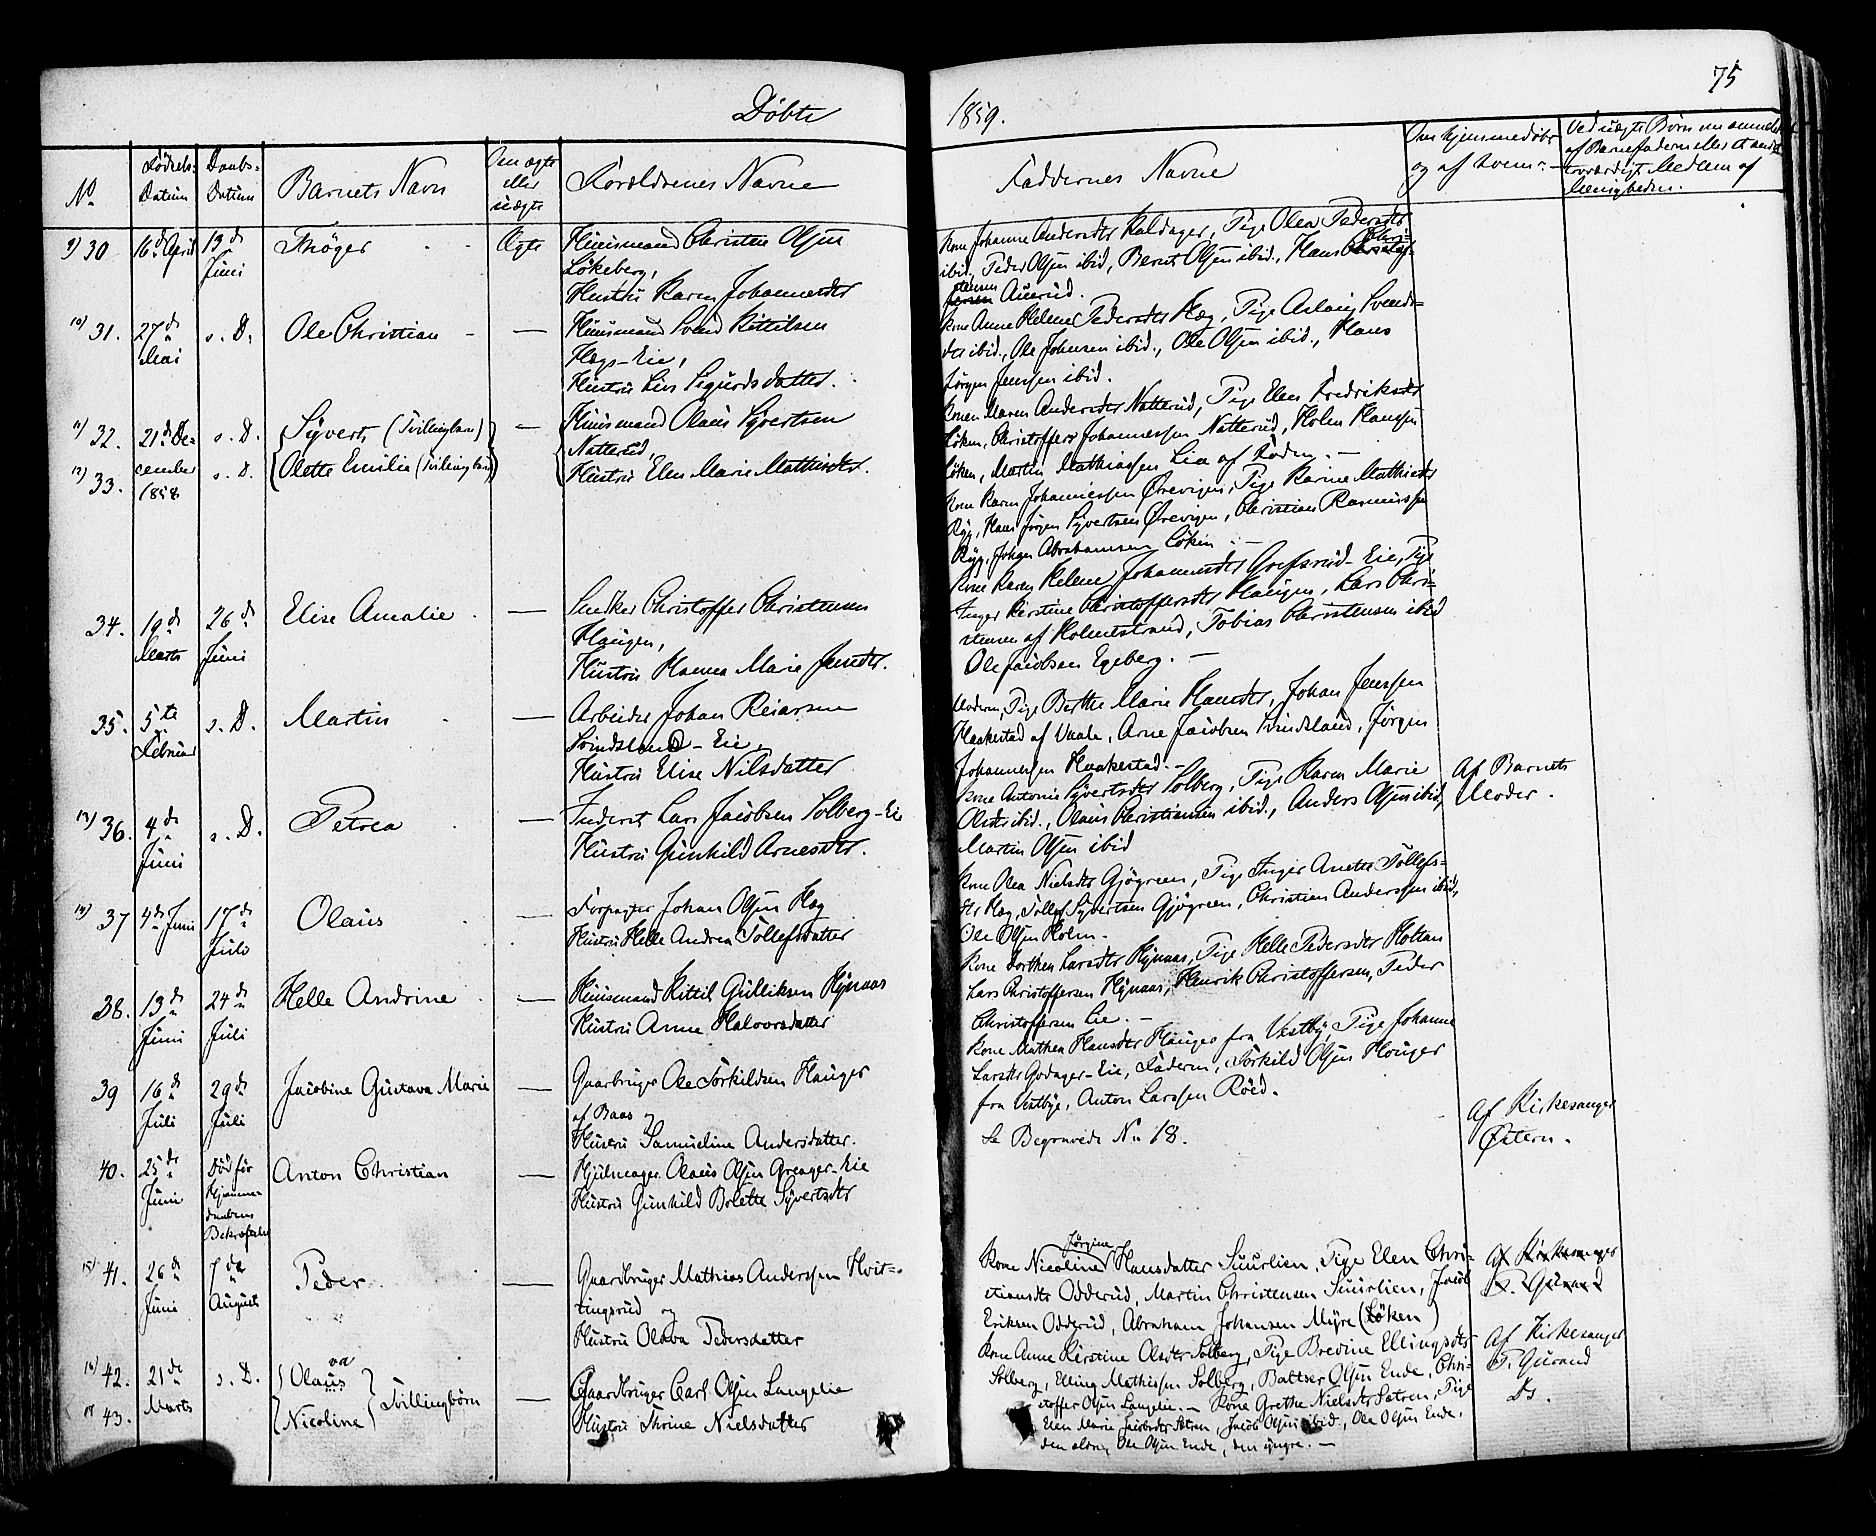 Døbte
1859.
75
No
Fødsels-
Datum
Daabs-
Datum
Barnets Navn
Om ægte
eller
uægte
Forældrenes Navne
Faddernes Navne
Om hjemmedøbt
og af hvem.
Ved uægte Børn om anmeldt
af Barnefaderen eller et andet
troværdigt Medlem af
Menigheden.
9) 30
16de April
13de
Juni
Thøger
Ægte
Huusmand Christen Olsen
Løkeberg,
Hustru Karen Johannesdtr
Kone Johanne Andersdtr Kaldager, Pige Olea Pedersdtr
ibid., Peder Olsen ibid, Bernt Olsen ibid., Hans Chri-
stensen Auerud.
10) 31.
27de
Mai
s. D.
Ole Christian
Huusmand Svend Kittilsen
Høgs-Eie,
Hustru Liv Sigurdsdatter.
Kone Anne Helene Pedersdtr Høg, Pige Aslaug Svends-
dtr ibid., Ole Johnsen ibid., Ole Olsen ibid., Hans
Jørgen Jenssen ibid.
11) 32.
12) 33.
21de De-
cember
1858
s. D.
s. D.
Syvert (Tvillingbarn)
Olette Emilie (Tvillingbarn)
Huusmand Olaus Syvertsen
Natterud,
Hustru Elen Marie Mathisdtr.
Konen Maren Andersdtr Natterud, Pige Elen Fredriksdtr
Løken, Christoffer Johannessen Natterud, Holm Hanssen
Løken, Martin Mathiassen Lia af Roden.
Kone Karen Johannessen Ørevigen, Pige Karine Mathisdtr
Ryg, Hans Jørgen Syvertsen Ørevigen, Christian Rasmussen
Ryg, Johan Abrahamsen Løken.
34.
19de
Marts
26de
Juni
Elise Amalie
Snedker Christoffer Christensen
Haugen,
Hustru Hanna Marie Jensdtr.
Kone Karen Helene Johannesdtr Grefsrud-Eie, Pige
Inger Kirstine Christoffersdtr Haugen, Lars Chri-
stensen af Holmestrand, Tobias Christensen ibid
Ole Jacobsen Egeberg.
35.
5te
Februar
s. D.
Martin
Arbeider Johan Reiersen
Svindsland-Eie,
Hustru Elise Nilsdatter
Moderen, Pige Berthe Marie Hansdtr, Johan Jenssen
Haakestad af Vaale, Arne Jacobsen Svindsland, Jørgen
Johannessen Haakestad.
13) 36.
4de
Juni
s. D.
Petrea
Inderst Lars Jacobsen Solberg-Eie
Hustru Gunhild Arnesdtr.
Kone Antonie Syvertsdtr Solberg, Pige Karen Marie
Olsdtr ibid., Olaus Christiansen ibid., Anders Olsen ibid,
Martin Olsen ibid
Af Barnets
Moder.
14) 37
4de Juni
17de
Juli
Olaus
Forpagter Johan Olsen Høg
Hustru Helle Andrea Tollefsdatter
Kone Olea Nielsdtr Gjøgreen, Pige Inger Anette Tollefs-
dtr Høg, Tollef Syvertsen Gjøgreen, Christian Anderssen ibid,
Ole Olsen Holm.
38.
13de
Juni
24de
Juli
Helle Andrine
Huusmand Kittil Gulliksen Hynaas
Hustru Anne Halvorsdatter
Kone Dorthea Larsdtr Hynaas, Pige Helle Pedersdtr Holtan
Lars Christoffersen Hynaas, Henrik Christoffersen, Peder
Christoffersen Lie.
39
16de
Juli
29de
Juli
Jacobine Gustava Marie
Gaardbruger Ole Torkildsen Hauger
af Baas og
Hustru Samueline Andersdatter.
Kone Mathea Hansdtr Hauger fra Vestby, Pige Johanne
Larsdtr Godager-Eie, Faderen, Torkild Olsen Hauger
fra Vestbye, Anton Larssen Røed.
40.
25de
Juni
Død før
Hjemme-
daabens
Bekræftelse
Anton Christian
Hjulmager Olaus Olsen Greager-Eie
Hustru Gunhild Bolette Syvertsdtr
Se Begravede No 18.
Af Kirkesanger
Østern.
15) 41.
26de
Juni
7de
August
Peder
Gaardbruger Mathias Anderssen Hvit-
tingsrud og
Hustru Olava Pedersdatter
Kone Nicoline Jørgine Hansdatter Suurlien, Pige Elen Chri-
stiansdtr Odderud, Martin Christensen Suurlien, Jacob
Eriksen Odderud, Abraham Johansen Myre (Løken)
Af Kirkesanger
T. Gurand
16) 42.
17 43.
21de
Marts
s. D.
Olava
Nicoline
Tvillingbørn
Gaardbruger Carl Olsen Langelie
Hustru Thrine Nielsdatter
Kone Anne Kirstine Olsdtr Solberg, Pige Bredine Ellingsdtr
Solberg, Elling Mathissen Solberg, Baltser Olsen Ende, Chri-
stoffer Olsen Langelie. — Kone Grethe Nielsdtr Satren, Pige
Elen Marie Jacobsdtr Satren, Jacob Olsen ibid., Ole Olsen Ende,
den ældre, Ole Olsen Ende, den yngre.
Af Kirkesanger
T. Gurand
Ds.